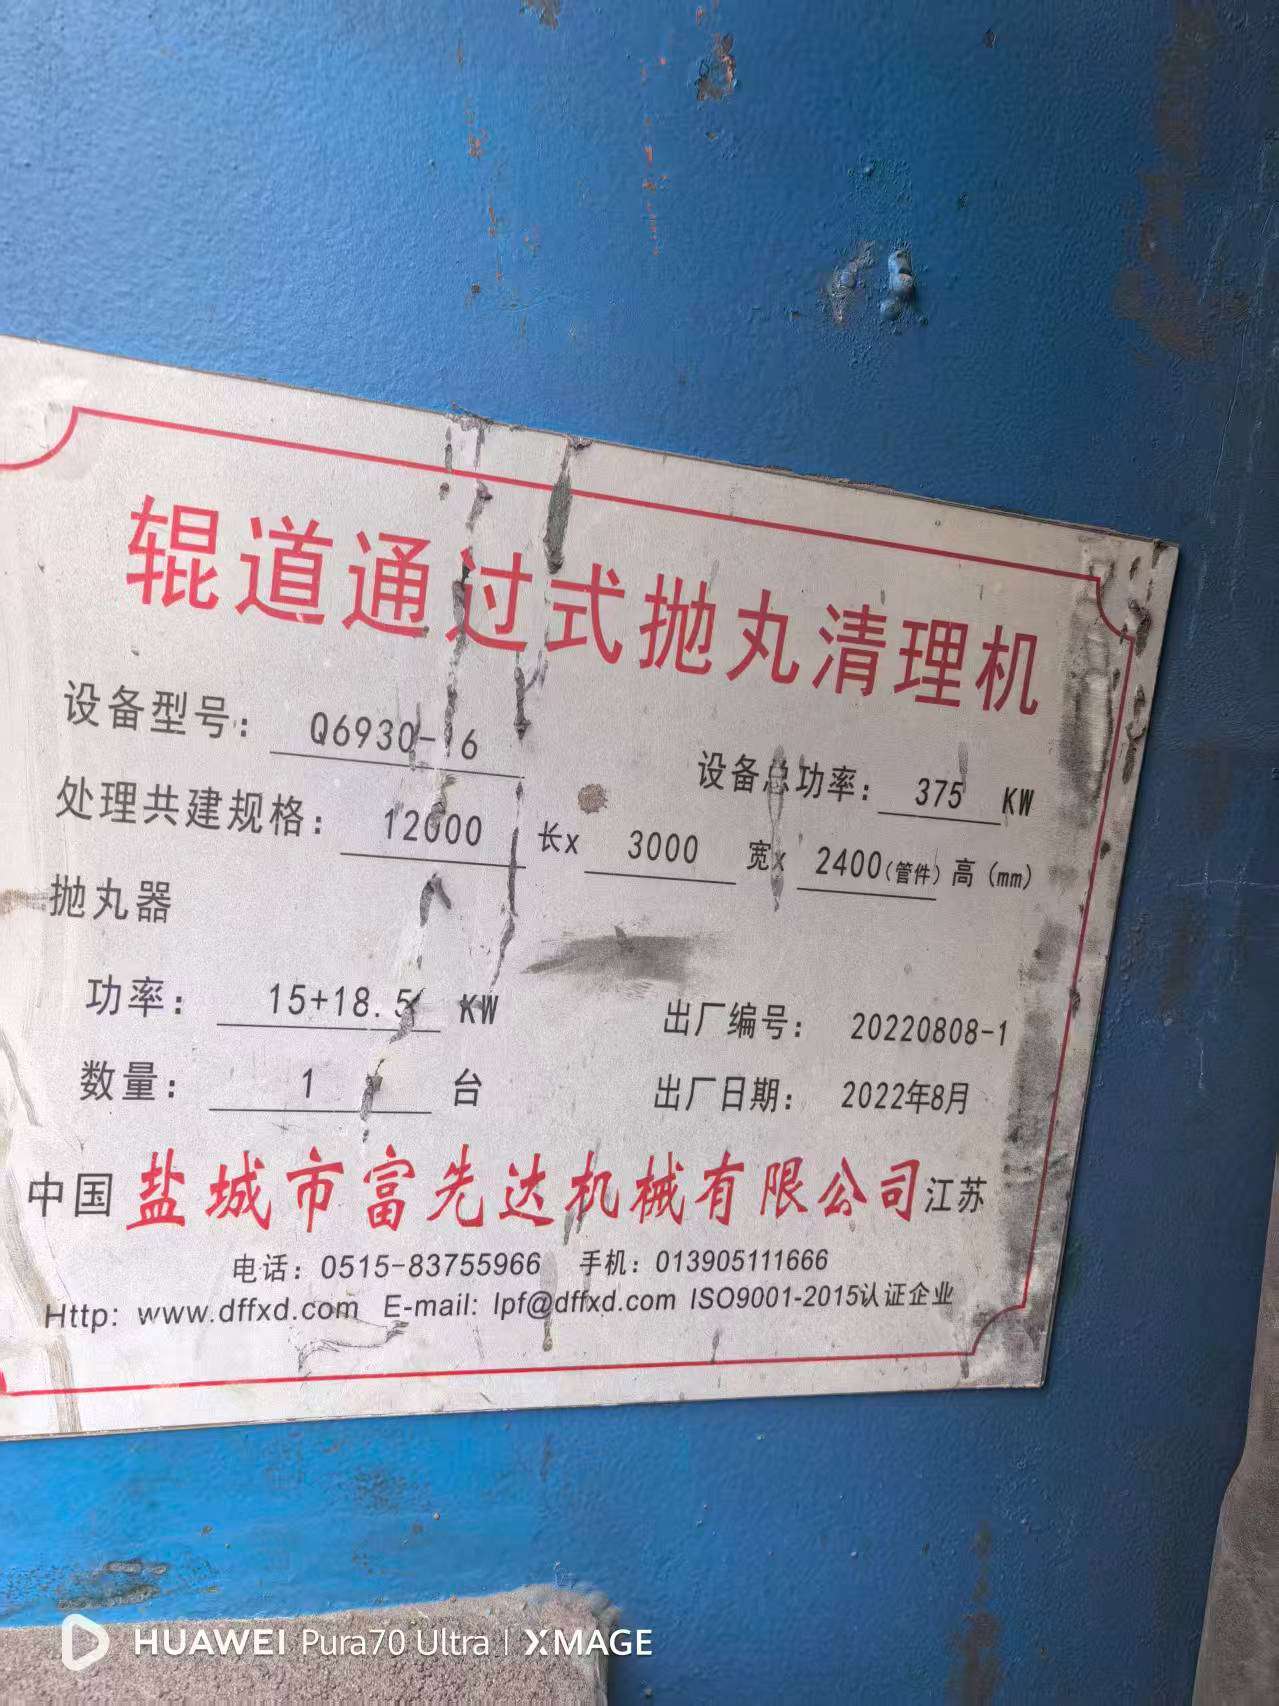 辊道通过式抛丸清理机
设备型号: Q6930-16
设备总功率: 375 KW
处理共建规格: 12000 长x 3000 宽x 2400(管件) 高(mm)
抛丸器
功率: 15+18.5 KW
出厂编号: 20220808-1
数量: 1 台
出厂日期: 2022年8月
中国 盐城市富先达机械有限公司 江苏
电话: 0515-83755966 手机: 013905111666
Http: www.dffxd.com E-mail: lpf@dffxd.com ISO9001-2015认证企业
HUAWEI Pura70 Ultra | XMAGE